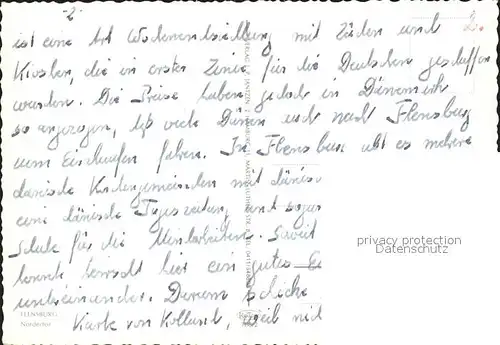 -2-
ist eine Art Wochenendsiedlung mit Läden und
Kiosken, die in erster Linie für die Deutschen geschaffen
wurden. Die Preise haben jedoch in Dänemark
so angezogen, daß viele Dänen auch nach Flensburg
zum Einkaufen fahren. In Flensburg gibt es mehrere
dänische Kirchengemeinden mit dänisc
eine dänische Tageszeitung, und sogar
Schule für die Minderheiten. Soweit
herrscht hier ein gutes
untereinander. Darum schicke
Karte von Holland, weil nic
FLENSBURG
Nordertor
privacy protection
Datenschutz